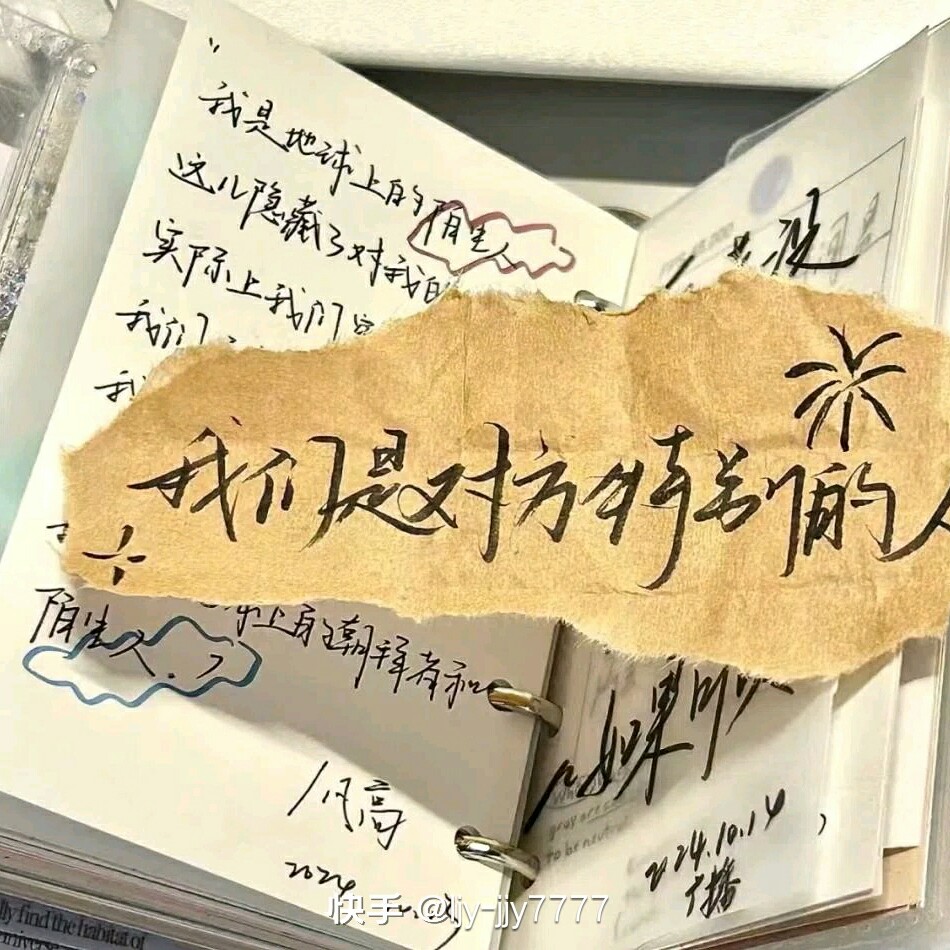 我是地球上的陌生人
这儿隐藏了对我的
实际上我们
我们
我
我们是对方特别的人
上的朝拜者和
陌生人。”
八月高
2024
没
如果可以
2024.10.14
广播
gray are
to be neutral
lly find the habitat of
universe
快手 @jy-jjy7777